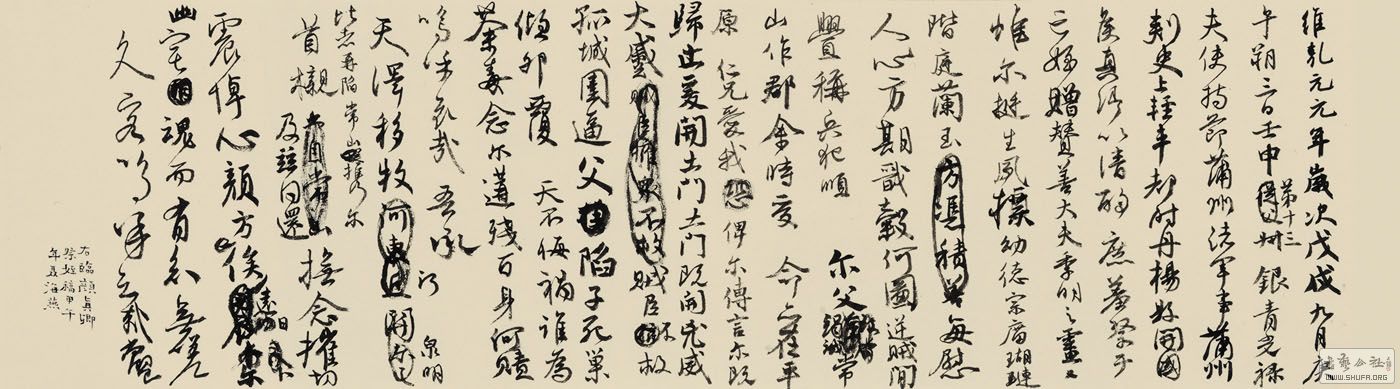 維乾元元年歲次戊戌九月庚
午朔三日壬申第十三叔銀青光祿
夫使持節蒲州諸軍事蒲州
刺史上輕車都尉丹楊縣開國
侯真卿以清酌庶羞祭于
亡姪贈贊善大夫季明之靈曰
惟爾挺生夙標幼德宗廟瑚璉
階庭蘭玉方憑積善每慰
人心方期戩穀何圖逆賊間
釁稱兵犯順爾父竭誠常
山作郡余時受命亦在平
原仁兄愛我恐俾爾傳言爾既
歸止爰開土門土門既開兇威
大蹙賊臣擁眾不救賊臣不救
孤城圍逼父陷子死巢
傾卵覆天不悔禍誰為
荼毒念爾遘殘百身何贖
嗚乎哀哉吾承泉明
天澤移牧河東近關
比者再陷常山攜爾
首櫬及茲同還撫念摧切
震悼心顏方俟遠日
幽宅魂而有知無嗟
久客嗚呼哀哉尚饗
右臨顏真卿
祭姪稿甲午
年海燕
WWW.SHUFA.ORG